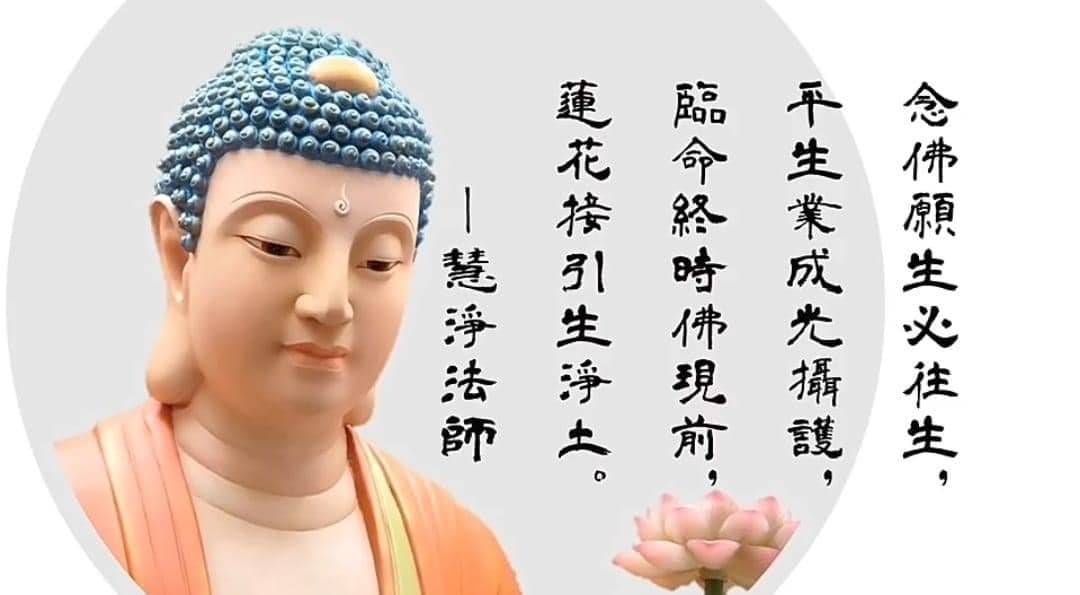 念佛願生必往生，
平生業成光攝護，
臨命終時佛現前，
蓮花接引生淨土。
—慧淨法師